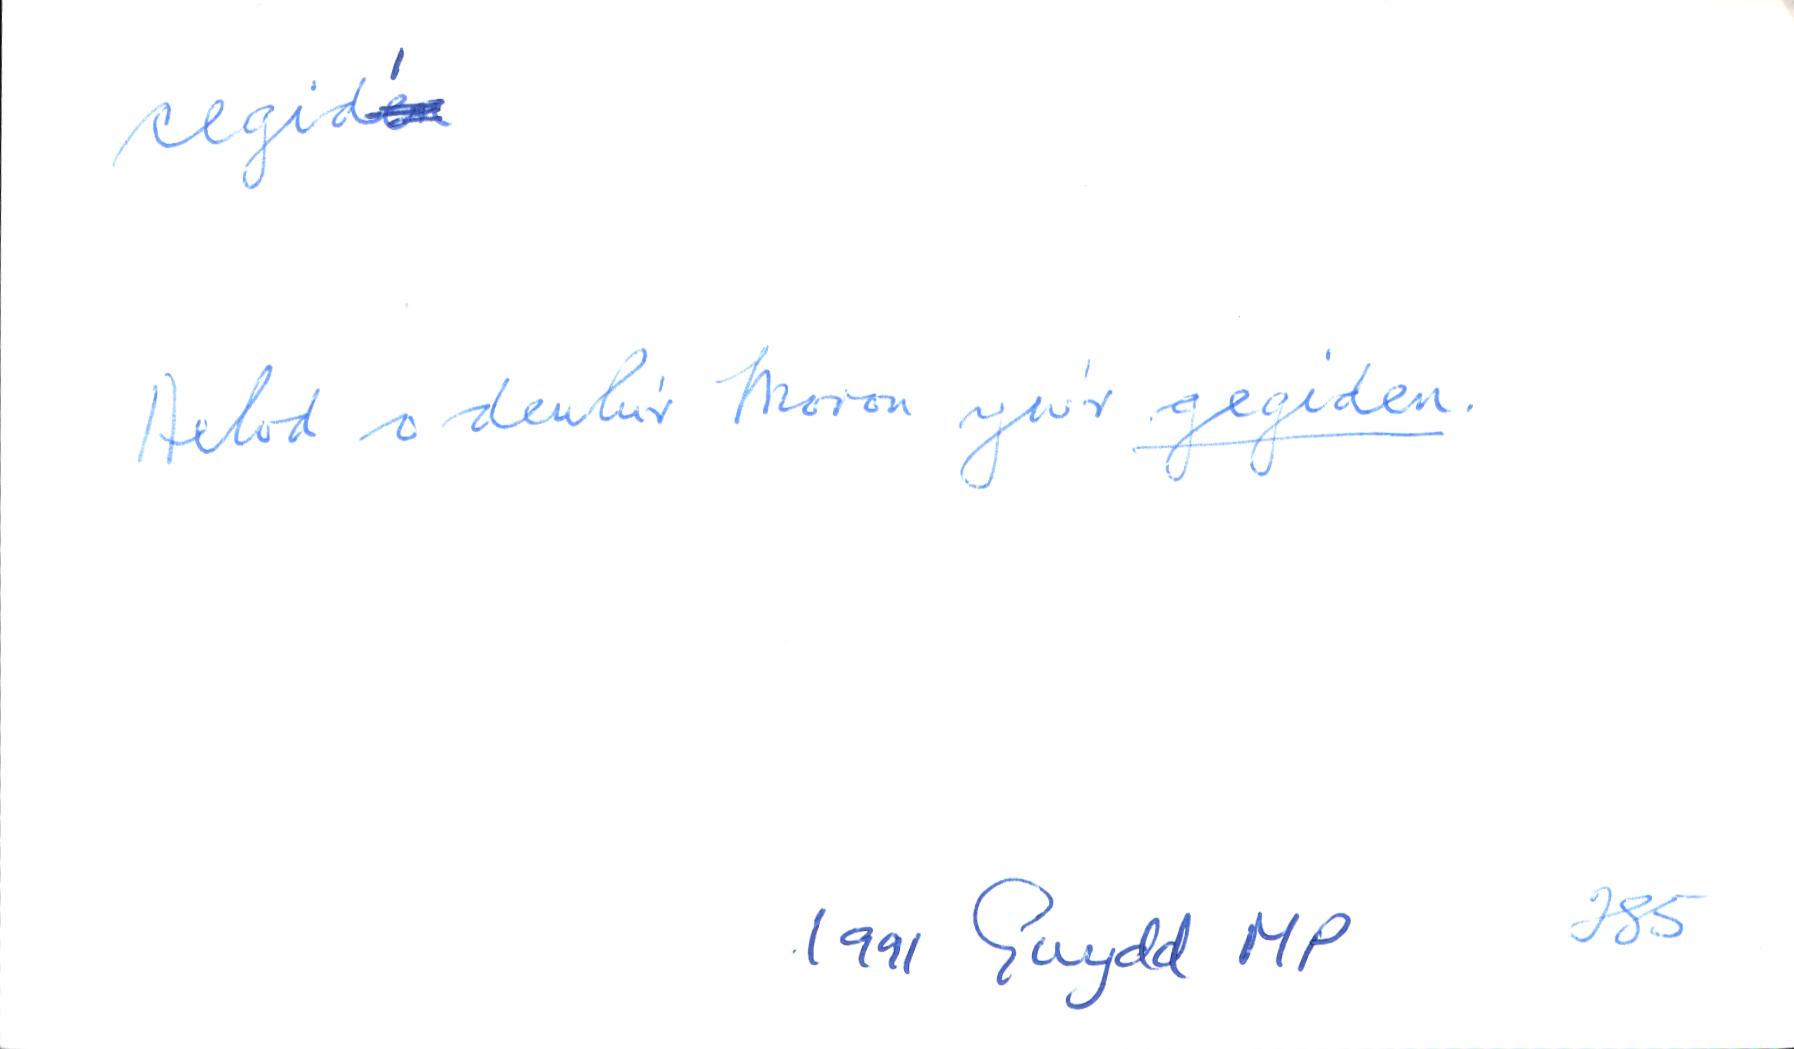 cegid
Aelod o deulu'r Moron yw'r gegiden.
1991 Gwydd MP 285